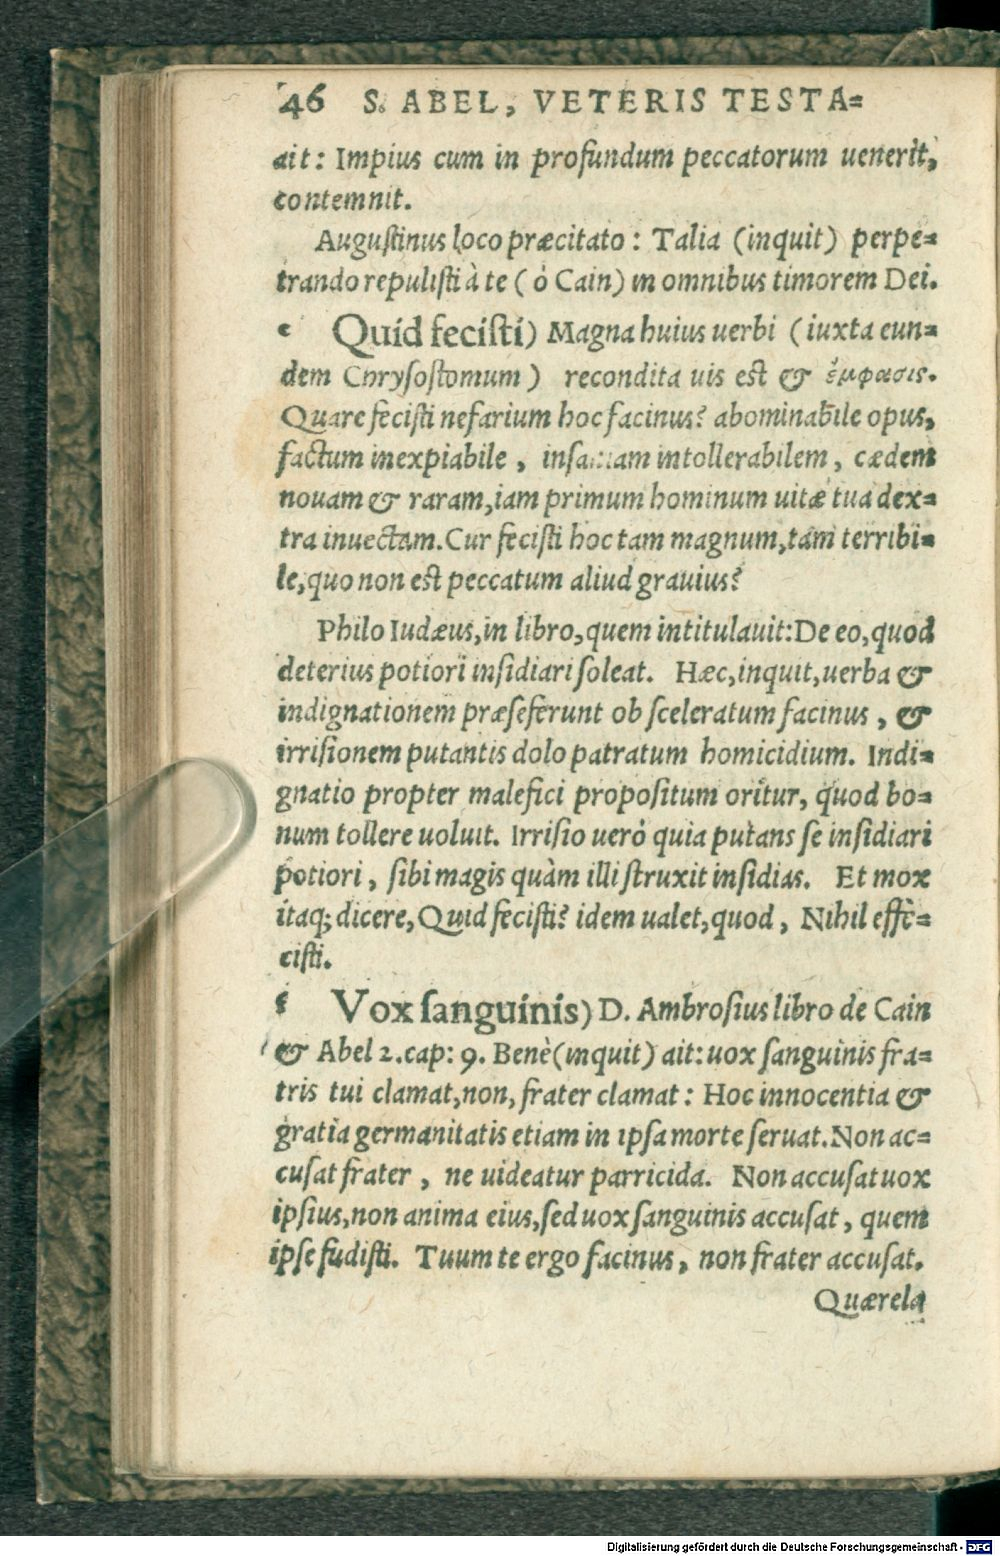 46 S. ABEL, VETERIS TESTA=
ait: Impius cum in profundum peccatorum uenerit,
contemnit.
Auguſtinus loco præcitato: Talia (inquit) perpe=
trando repuliſti à te (ò Cain) in omnibus timorem Dei.
e Quid feciſti) Magna huius uerbi (iuxta eun=
dem Chryſoſtomum) recondita uis est & ἔμφασις.
Quare feciſti nefarium hoc facinus? abominabile opus,
factum inexpiabile, inſaniam intollerabilem, cædem
nouam & raram, iam primum hominum uitæ tua dex=
tra inuectam. Cur feciſti hoc tam magnum, tam terribi=
le, quo non est peccatum aliud grauius?
Philo Iudæus, in libro, quem intitulauit: De eo, quod
deterius potiori inſidiari ſoleat. Hæc, inquit, uerba &
indignationem præſeferunt ob ſceleratum facinus, &
irriſionem putantis dolo patratum homicidium. Indi=
gnatio propter malefici propoſitum oritur, quod bo=
num tollere uoluit. Irriſio uerò quia putans ſe inſidiari
potiori, ſibi magis quàm illi ſtruxit inſidias. Et mox
itaq; dicere, Quid feciſti? idem ualet, quod, Nihil effe=
ciſti.
f Vox ſanguinis) D. Ambroſius libro de Cain
& Abel 2. cap: 9. Benè (inquit) ait: uox ſanguinis fra=
tris tui clamat, non, frater clamat: Hoc innocentia &
gratia germanitatis etiam in ipſa morte ſeruat. Non ac=
cuſat frater, ne uideatur parricida. Non accuſat uox
ipſius, non anima eius, ſed uox ſanguinis accuſat, quem
ipſe fudiſti. Tuum te ergo facinus, non frater accuſat.
Quærela
Digitalisierung gefördert durch die Deutsche Forschungsgemeinschaft - DFG